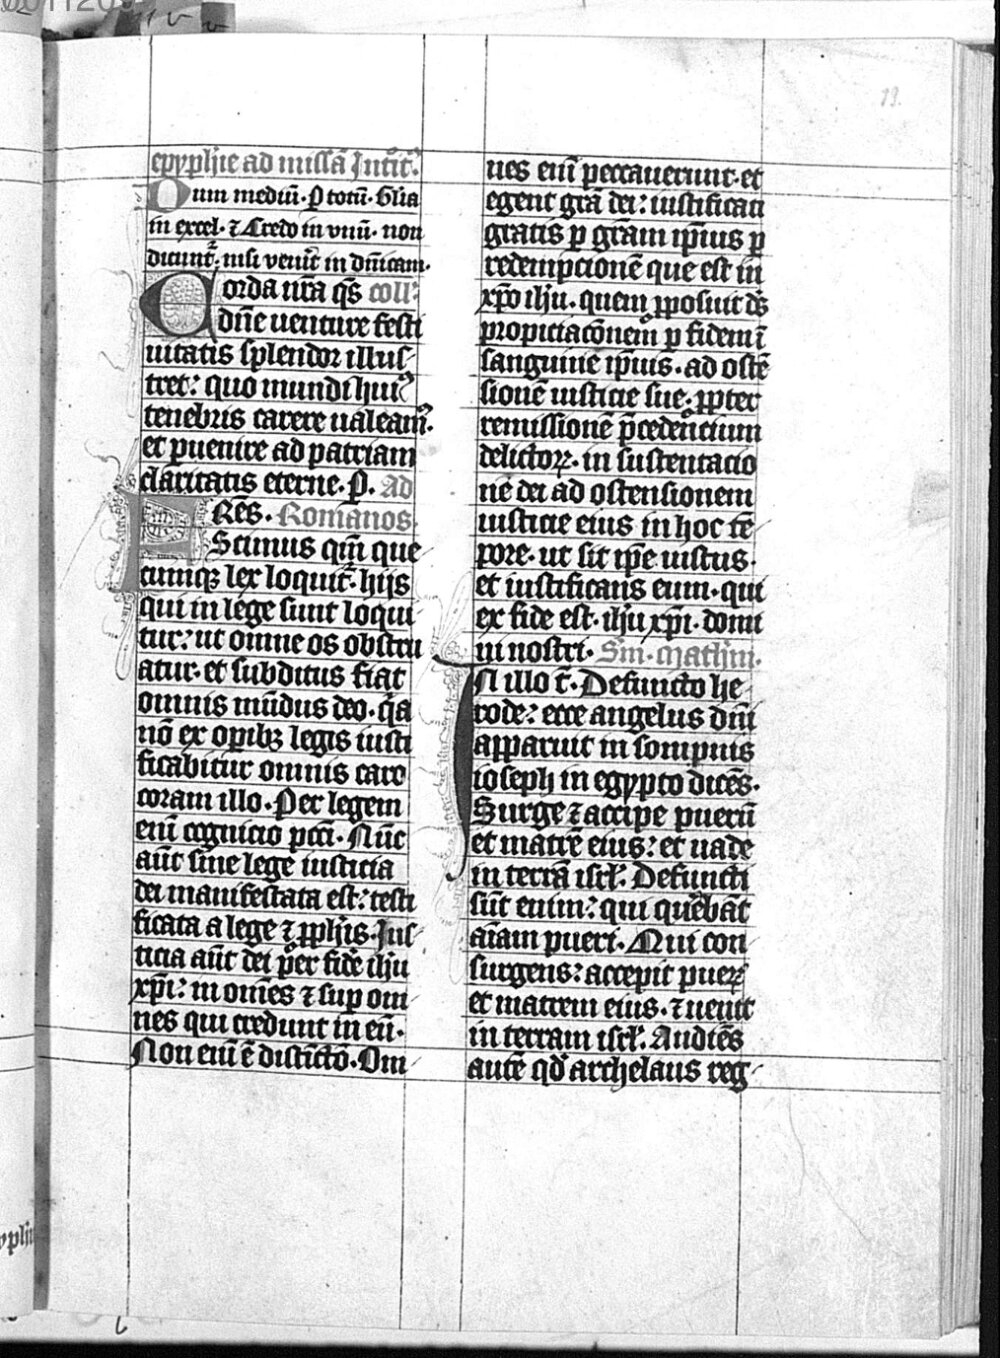 19.
epyphīe ad missā Introit᷒.
Dum mediū. P̄ totū. Glīa
in excel. ⁊ Credo in vnū. non
dicunt᷑. nisi veniēt in dn̄icam.
Corda nr̄a qs̄ coll᷒.
dn̄e venture festi
uitatis splendor illus-
tret: quo mundi hui᷒
tenebris carere ualeam᷒.
et ꝑuenire ad patriam
claritatis eterne. P̄. Ad
FRēs. Romanos.
Scimus qm̄ que
cumqꝫ lex loquit᷑ hijs
qui in lege sunt loqui
tur: ut omne os obstru
atur. et subditus fiat
omnis mūdus deo. q̇a
nō ex opibꝫ legis iusti
ficabitur omnis caro
coram illo. Per legem
enī cognicio pcc̄i. Nūc
aūt sine lege iusticia
dei manifestata est: testi
ficata a lege ⁊ ꝓph̄is. Jus-
ticia aūt dei per fidē ih̄u
xp̄i: in om̄es ⁊ sup om
nes qui credunt in eū.
Non enī ē distīctō. Om
nes enī peccauerunt. et
egent grā dei: iustificati
gratis ꝑ grām ip̄ius ꝑ
redempcionē que est in
xp̄o ih̄u. quem ꝓposuit ds̄
propiciacōnem ꝑ fidem ī
sanguine ip̄ius. ad ostē
sionē iusticie sue. ꝓpter
remissionē p̄cedencium
delictoꝝ. in sustentacio
nē dei ad ostensionem
iusticie eius in hoc tē
pore. ut sit ip̄e iustus.
et iustificans eum. qui
ex fide est. ih̄u xp̄i. domi
ni nostri. Sm̄. Math̄m.
IN illo t̄. Defuncto he
rode: ecce angelus dn̄i
apparuit in sompnis
ioseph in egypto dicēs.
Surge ⁊ accipe puerū
et matrē eius: et uade
in terrā isrl̄. Defuncti
sūt enim: qui querebāt
aīam pueri. Qui con
surgens: accepit pueꝝ
et matrem eius. ⁊ uenit
in terram isrl̄. Audiēs
autē qd̄ archelaus reg